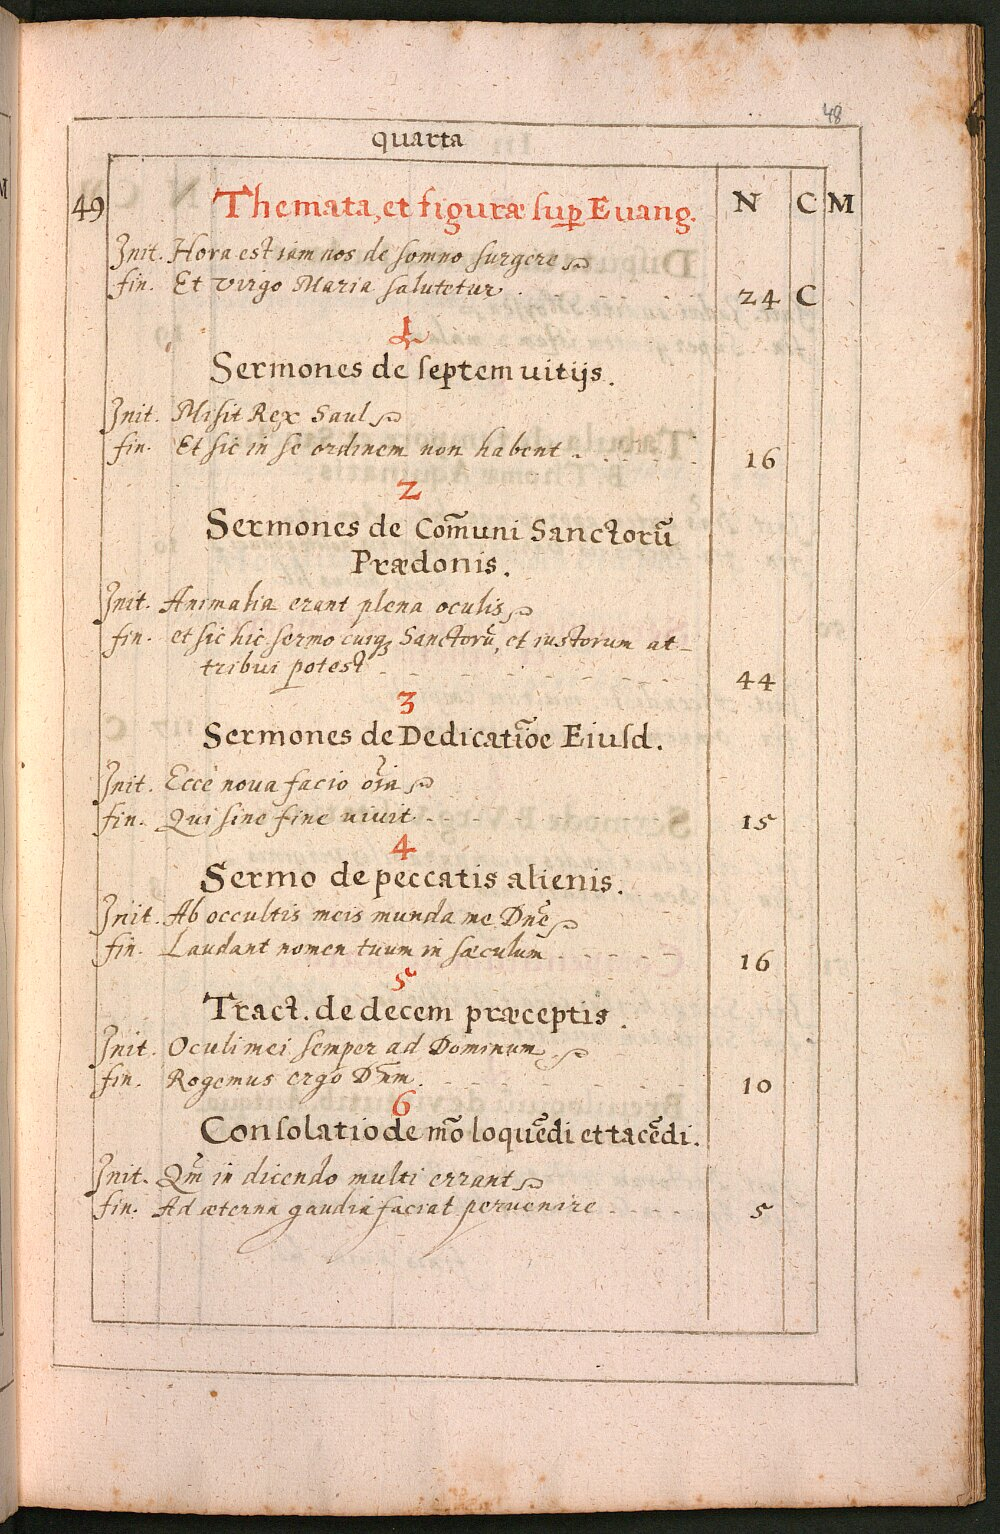 48
quarta
49 Themata, et figuræ sup Euang. N C M
Init. Hora est iam nos de somno surgere
fin. Et virgo Maria salutetur . 24 C
1
Sermones de septem uitijs.
Init. Misit Rex Saul
fin. Et sic in se ordinem non habent . . . . . 16
2
Sermones de Com̃uni Sanctorũ
Prædonis.
Init. Animalia erant plena oculis
fin. et sic hic sermo cuiqꝫ Sanctorũ, et iustorum at-
tribui potest - - - - - - - 44
3
Sermones de Dedicatiõe Eiusd.
Init. Ecce noua facio oĩa
fin. Qui sine fine uiuit - - - - - 15
4
Sermo de peccatis alienis.
Init. Ab occultis meis munda me Dñe
fin. Laudant nomen tuum in sæculum - - - - 16
5
Tract. de decem præceptis.
Init. Oculi mei semper ad Dominum
fin. Rogemus ergo Dñm. - - - - - - 10
6
Consolatio de mõ loquẽdi et tacẽdi.
Init. Qm̃ in dicendo multi errant
fin. Ad æterna gaudia faciat peruenire - - - - 5